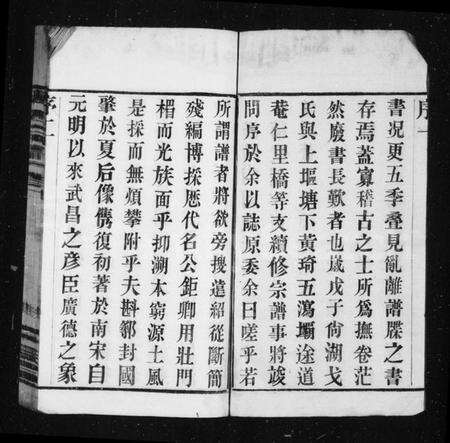 序一
書况更五季叠見亂離譜牒之書
存焉蓋寡稽古之士所爲撫卷茫
然廢書長歎者也歲戊子尙湖戈
氏與上堰塘下黃琦五瀉壩途道
菴仁里橋等支續修宗譜事將竣
問序於余以誌原委余曰嗟乎若
所謂譜者將欲旁搜遠紹從斷簡
殘編博採歷代名公鉅卿用壯門
楣而光族面乎抑溯本窮源土風
是採而無煩攀附乎夫斟鄩封國
肇於夏后像儁復初著於南宋自
元明以來武昌之彥臣廣德之象
序二